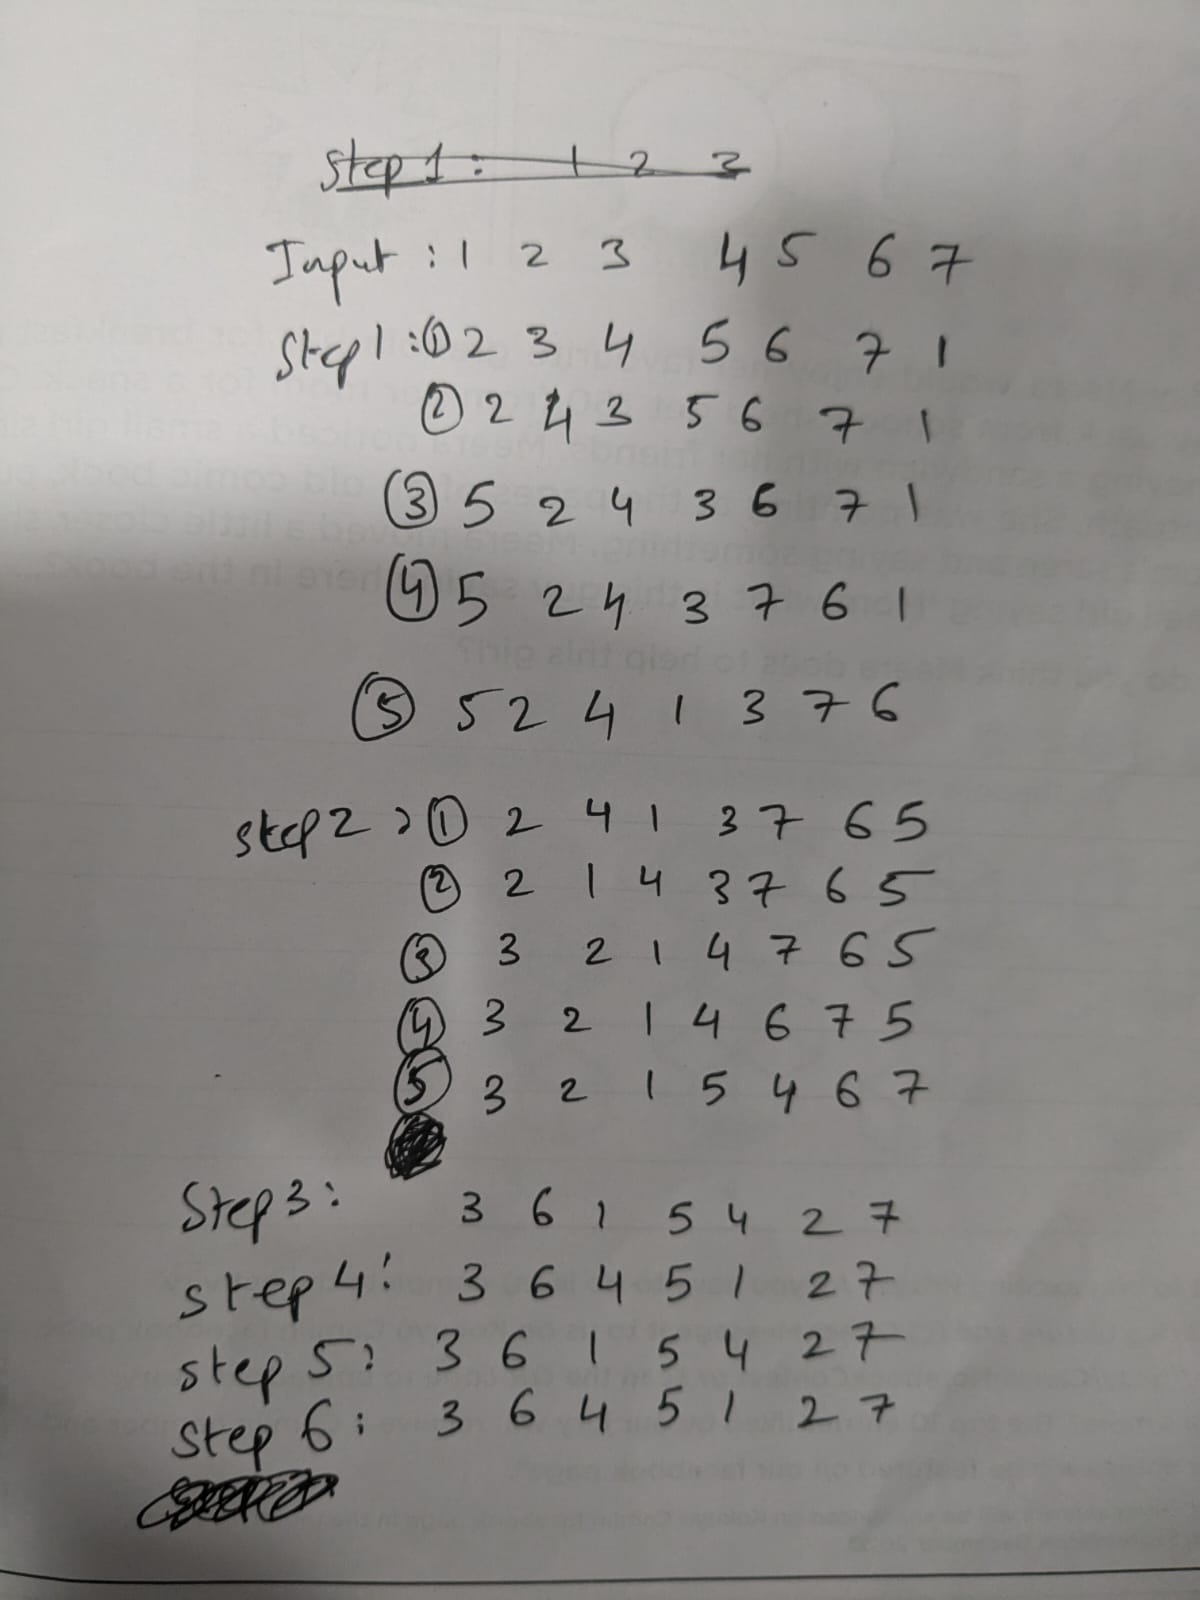 Step 1 : 1 2 3
Input : 1 2 3 4 5 6 7
Step 1 : ① 2 3 4 5 6 7 1
② 2 4 3 5 6 7 1
③ 5 2 4 3 6 7 1
④ 5 2 4 3 7 6 1
⑤ 5 2 4 1 3 7 6
step 2 : ① 2 4 1 3 7 6 5
② 2 1 4 3 7 6 5
③ 3 2 1 4 7 6 5
④ 3 2 1 4 6 7 5
⑤ 3 2 1 5 4 6 7
Step 3 : 3 6 1 5 4 2 7
step 4 : 3 6 4 5 1 2 7
step 5 : 3 6 1 5 4 2 7
step 6 : 3 6 4 5 1 2 7